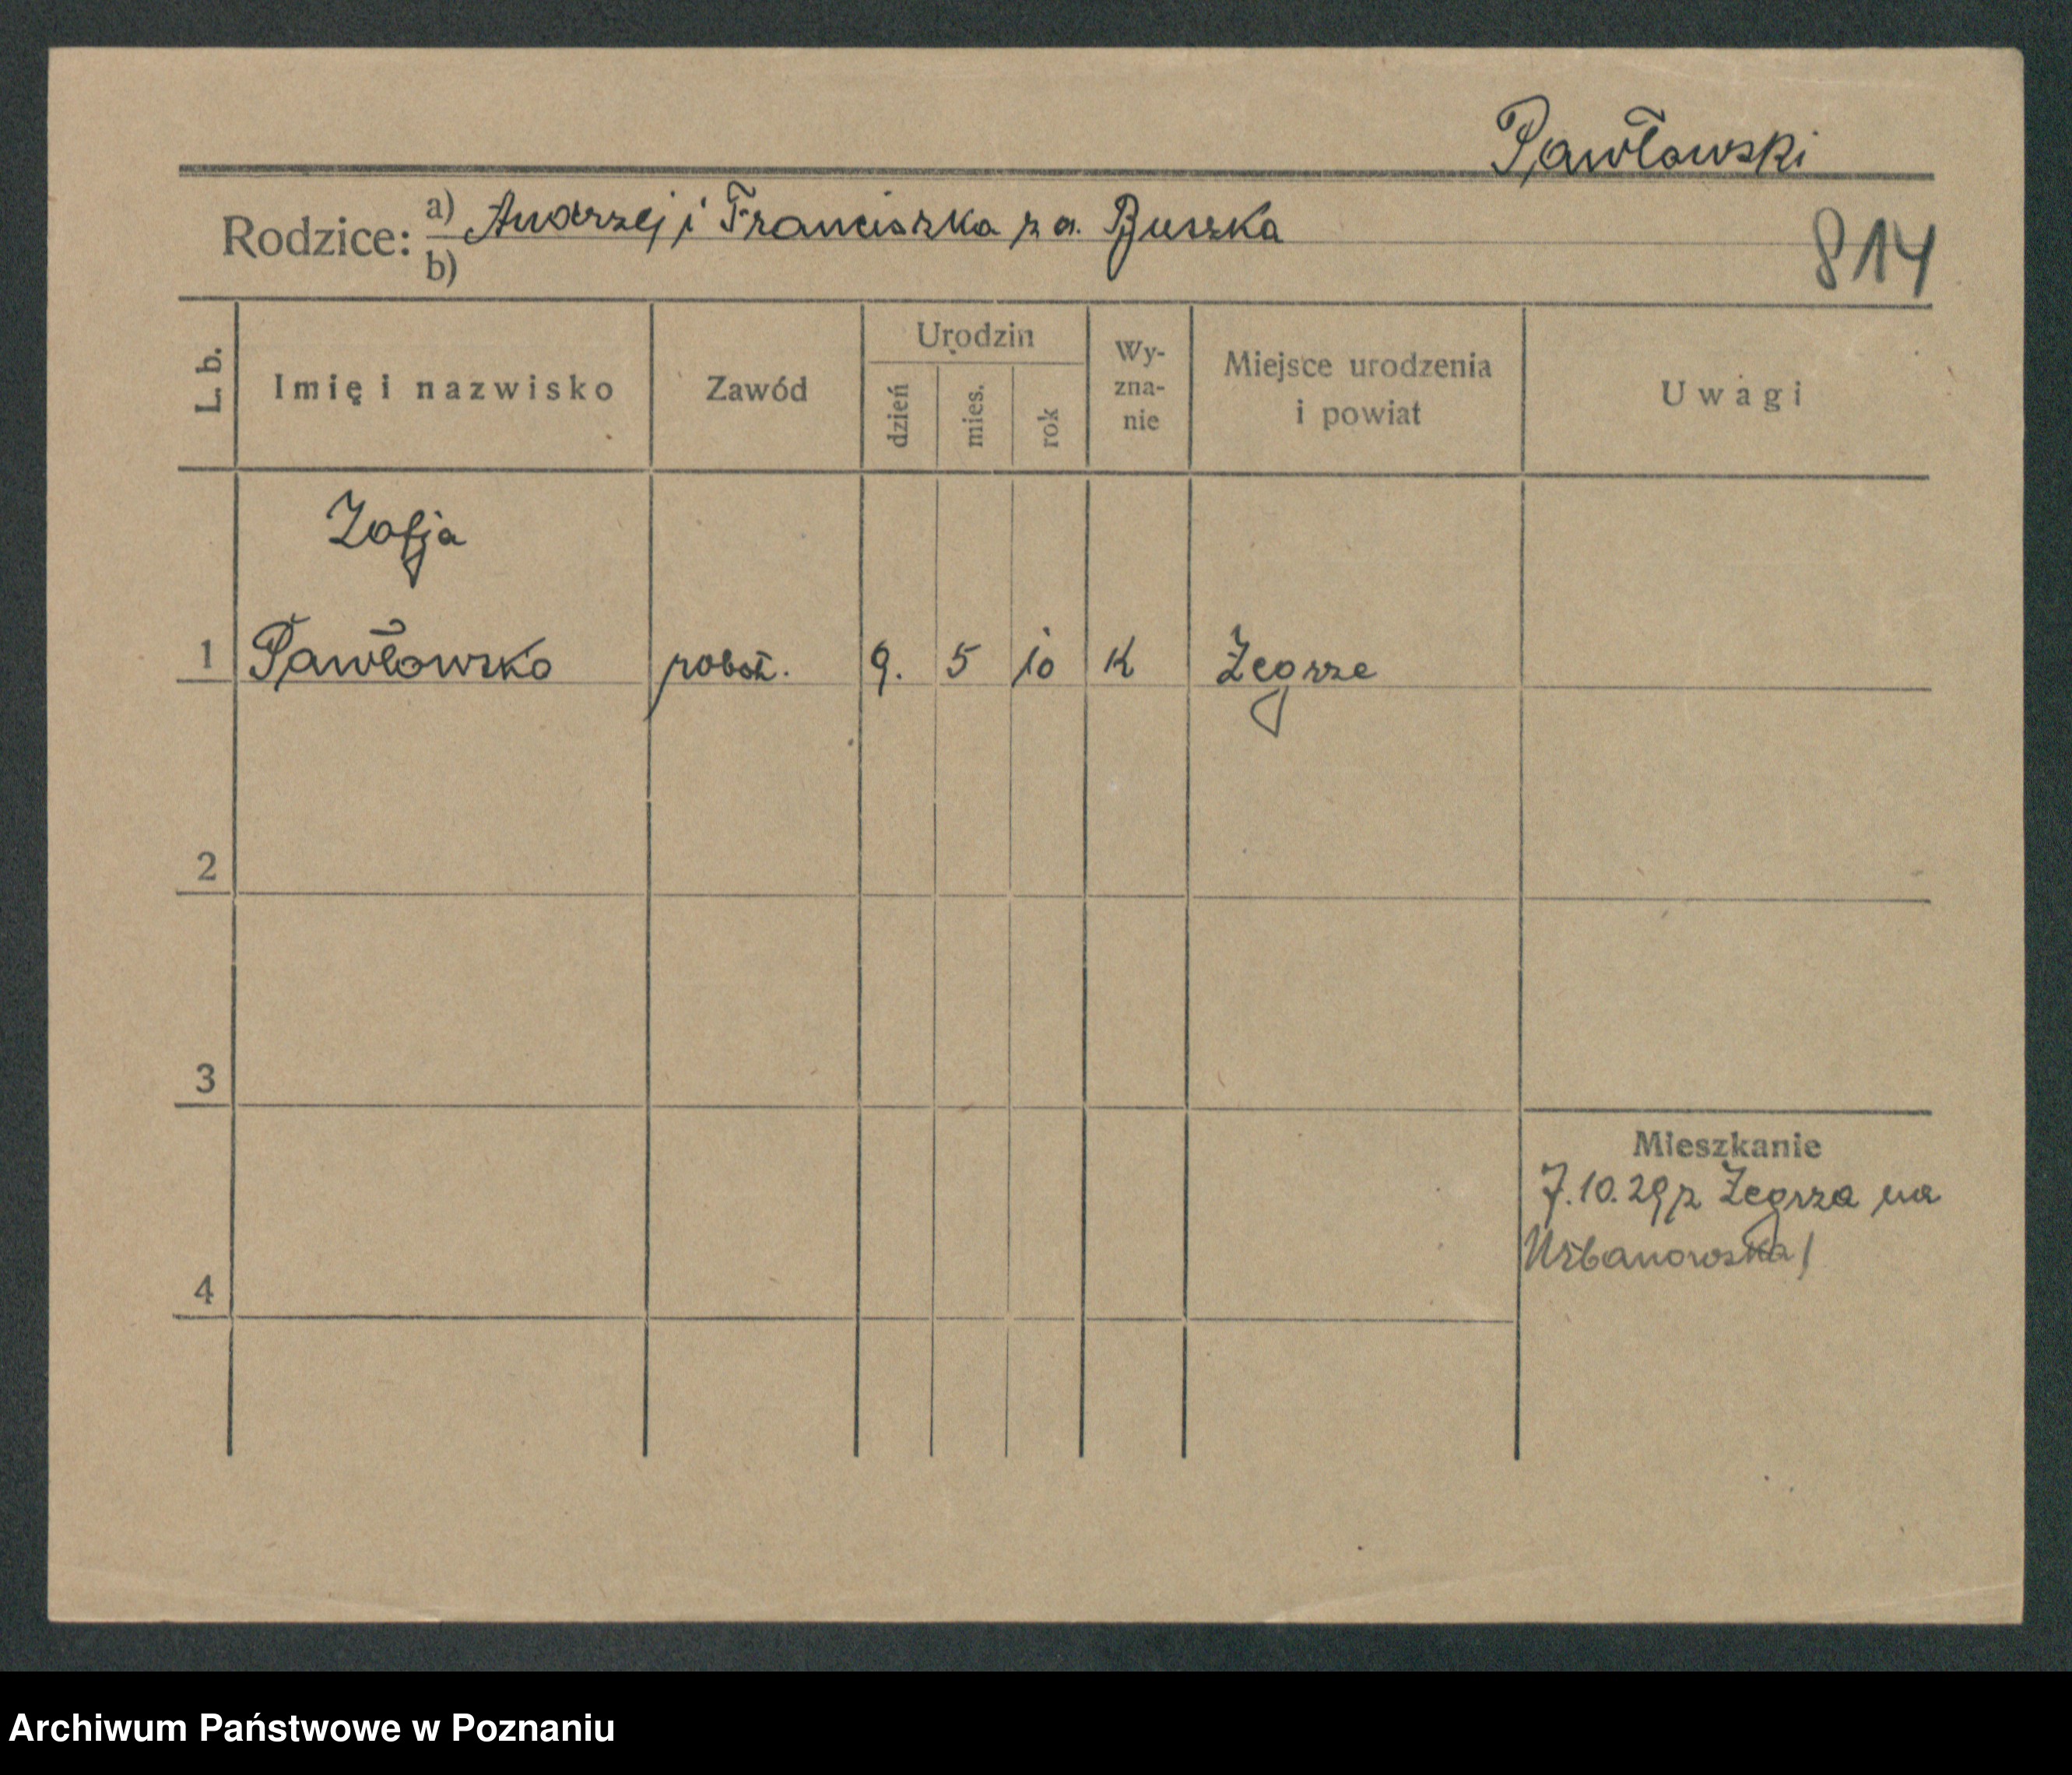 Pawłowski
Rodzice: a) Andrzej i Franciszka z d. Buszka
b)
814
L. b.
Imię i nazwisko
Zawód
Urodzin
dzień
mies.
rok
Wy-
zna-
nie
Miejsce urodzenia
i powiat
Uwagi
Zofja
1 Pawłowska robot. 9. 5 10 K Żegrze
2
3
4
Mieszkanie
7.10.29 z Żegrza na
Urbanowska
Archiwum Państwowe w Poznaniu